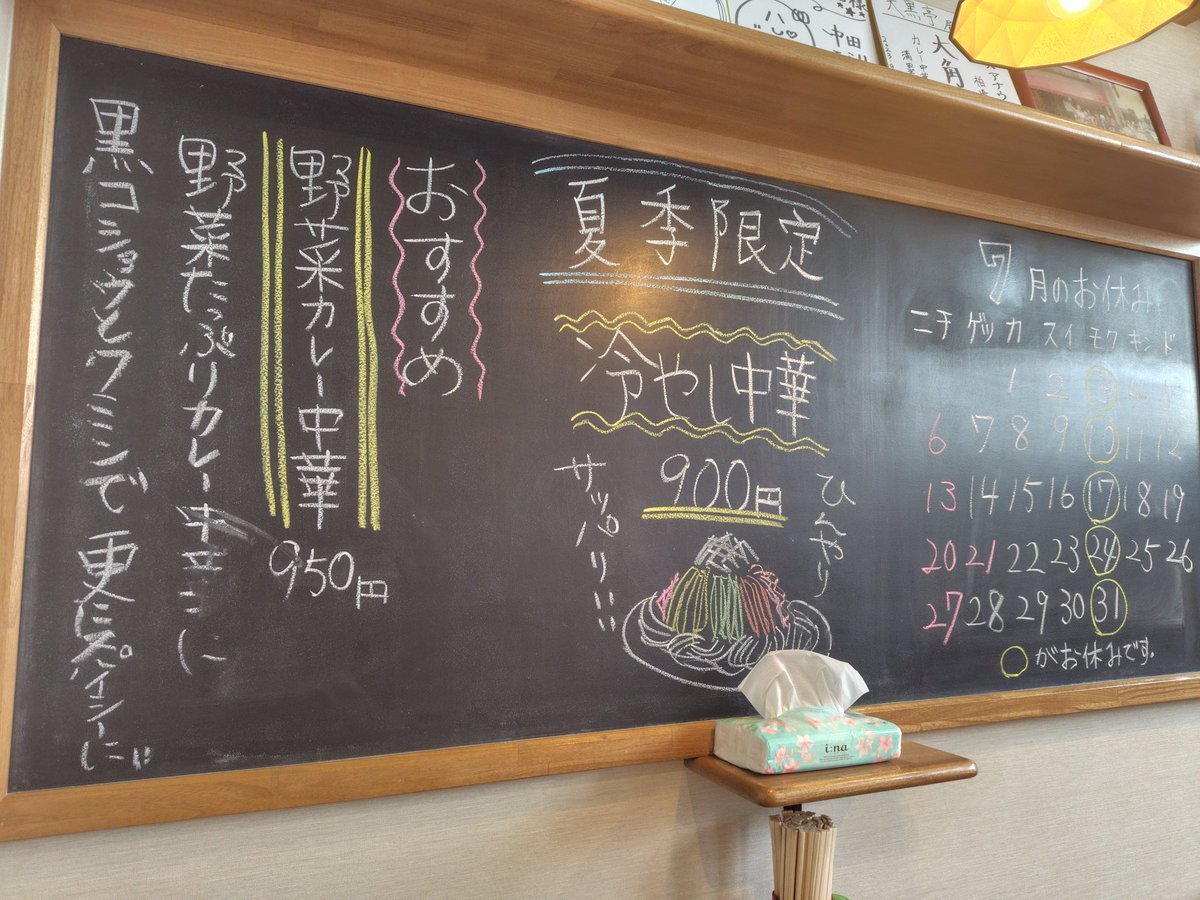 7月のお休み
ニチ ゲッ カ スイ モク キン ド
1 2 3 4 5
6 7 8 9 10 11 12
13 14 15 16 17 18 19
20 21 22 23 24 25 26
27 28 29 30 31
○がお休みです。
夏季限定
冷やし中華
900円
ひんやり
サッパリ!!
おすすめ
野菜カレー中華
950円
野菜たっぷりカレー中華に
黒コショウとクミンで更にスパイシーに!!
i:na
中田
大角